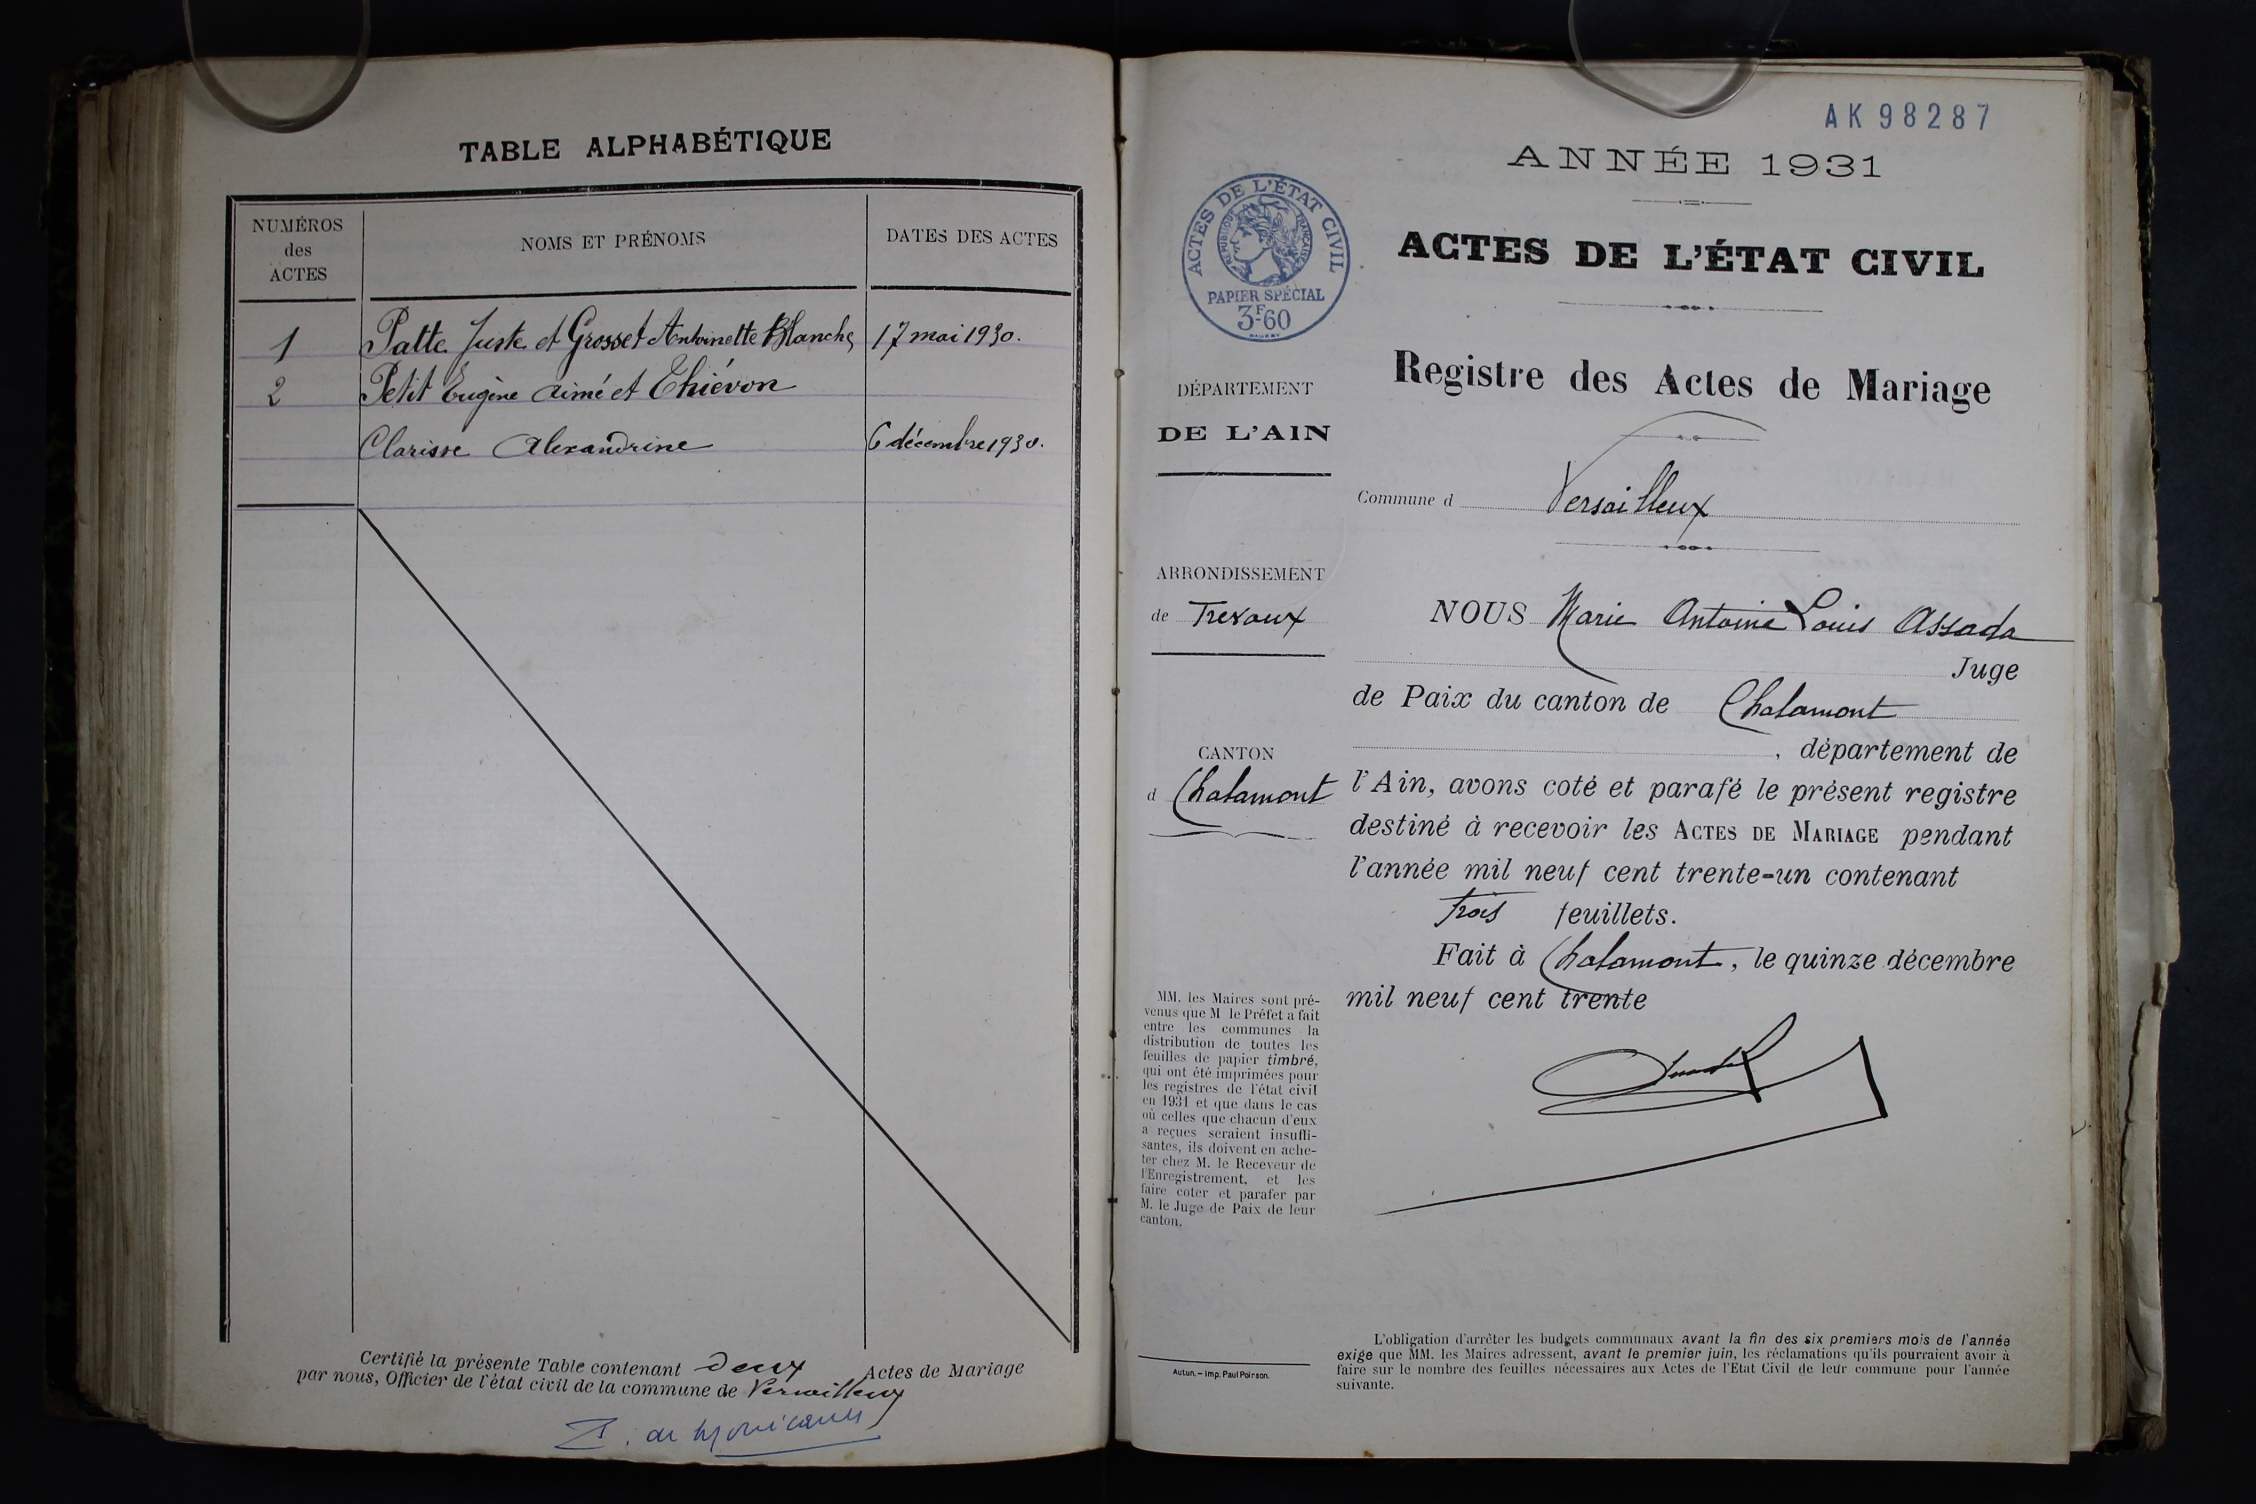 TABLE ALPHABÉTIQUE
NUMÉROS
des
ACTES
NOMS ET PRÉNOMS
DATES DES ACTES
1 Patte Juste et Grosset Antoinette Blanche 17 mai 1930.
2 Petit Eugène Aimé et Thiévon
Clarisse Alexandrine 6 décembre 1930.
Certifié la présente Table contenant deux Actes de Mariage
par nous, Officier de l'état civil de la commune de Versailleux
AK98287
ANNÉE 1931
ACTES DE L'ÉTAT CIVIL
RÉPUBLIQUE FRANÇAISE
PAPIER SPÉCIAL
3F60
ACTES DE L'ÉTAT CIVIL
Registre des Actes de Mariage
DÉPARTEMENT
DE L'AIN
Commune d Versailleux
ARRONDISSEMENT
de Trevoux
CANTON
d Chalamont
MM. les Maires sont pré-
venus que M le Préfet a fait
entre les communes la
distribution de toutes les
feuilles de papier timbré,
qui ont été imprimées pour
les registres de l'état civil
en 1931 et que dans le cas
où celles que chacun d'eux
a reçues seraient insuffi-
santes, ils doivent en ache-
ter chez M. le Receveur de
l'Enregistrement, et les
faire coter et parafer par
M. le Juge de Paix de leur
canton.
Autun. – Imp. Paul Poirson.
NOUS Marie Antoine Louis Assada
Juge
de Paix du canton de Chalamont
, département de
l'Ain, avons coté et parafé le présent registre
destiné à recevoir les ACTES DE MARIAGE pendant
l'année mil neuf cent trente-un contenant
trois feuillets.
Fait à Chalamont, le quinze décembre
mil neuf cent trente
L'obligation d'arrêter les budgets communaux avant la fin des six premiers mois de l'année
exige que MM. les Maires adressent, avant le premier juin, les réclamations qu'ils pourraient avoir à
faire sur le nombre des feuilles nécessaires aux Actes de l'Etat Civil de leur commune pour l'année
suivante.